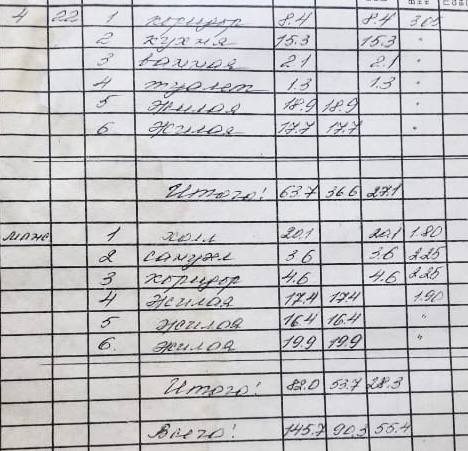 4 22 1 коридор 8.4 8.4 3.05
2 кухня 15.3 15.3 "
3 ванная 2.1 2.1 "
4 туалет 1.3 1.3 "
5 жилая 18.9 18.9 "
6 жилая 17.7 17.7 "
Итого: 63.7 36.6 27.1
1 холл 20.1 20.1 1.80
2 санузл 3.6 3.6 2.25
3 коридор 4.6 4.6 2.25
4 жилая 17.4 17.4 1.90
5 жилая 16.4 16.4 "
6. жилая 19.9 19.9 "
Итого: 82.0 53.7 28.3
Всего: 145.7 90.3 55.4